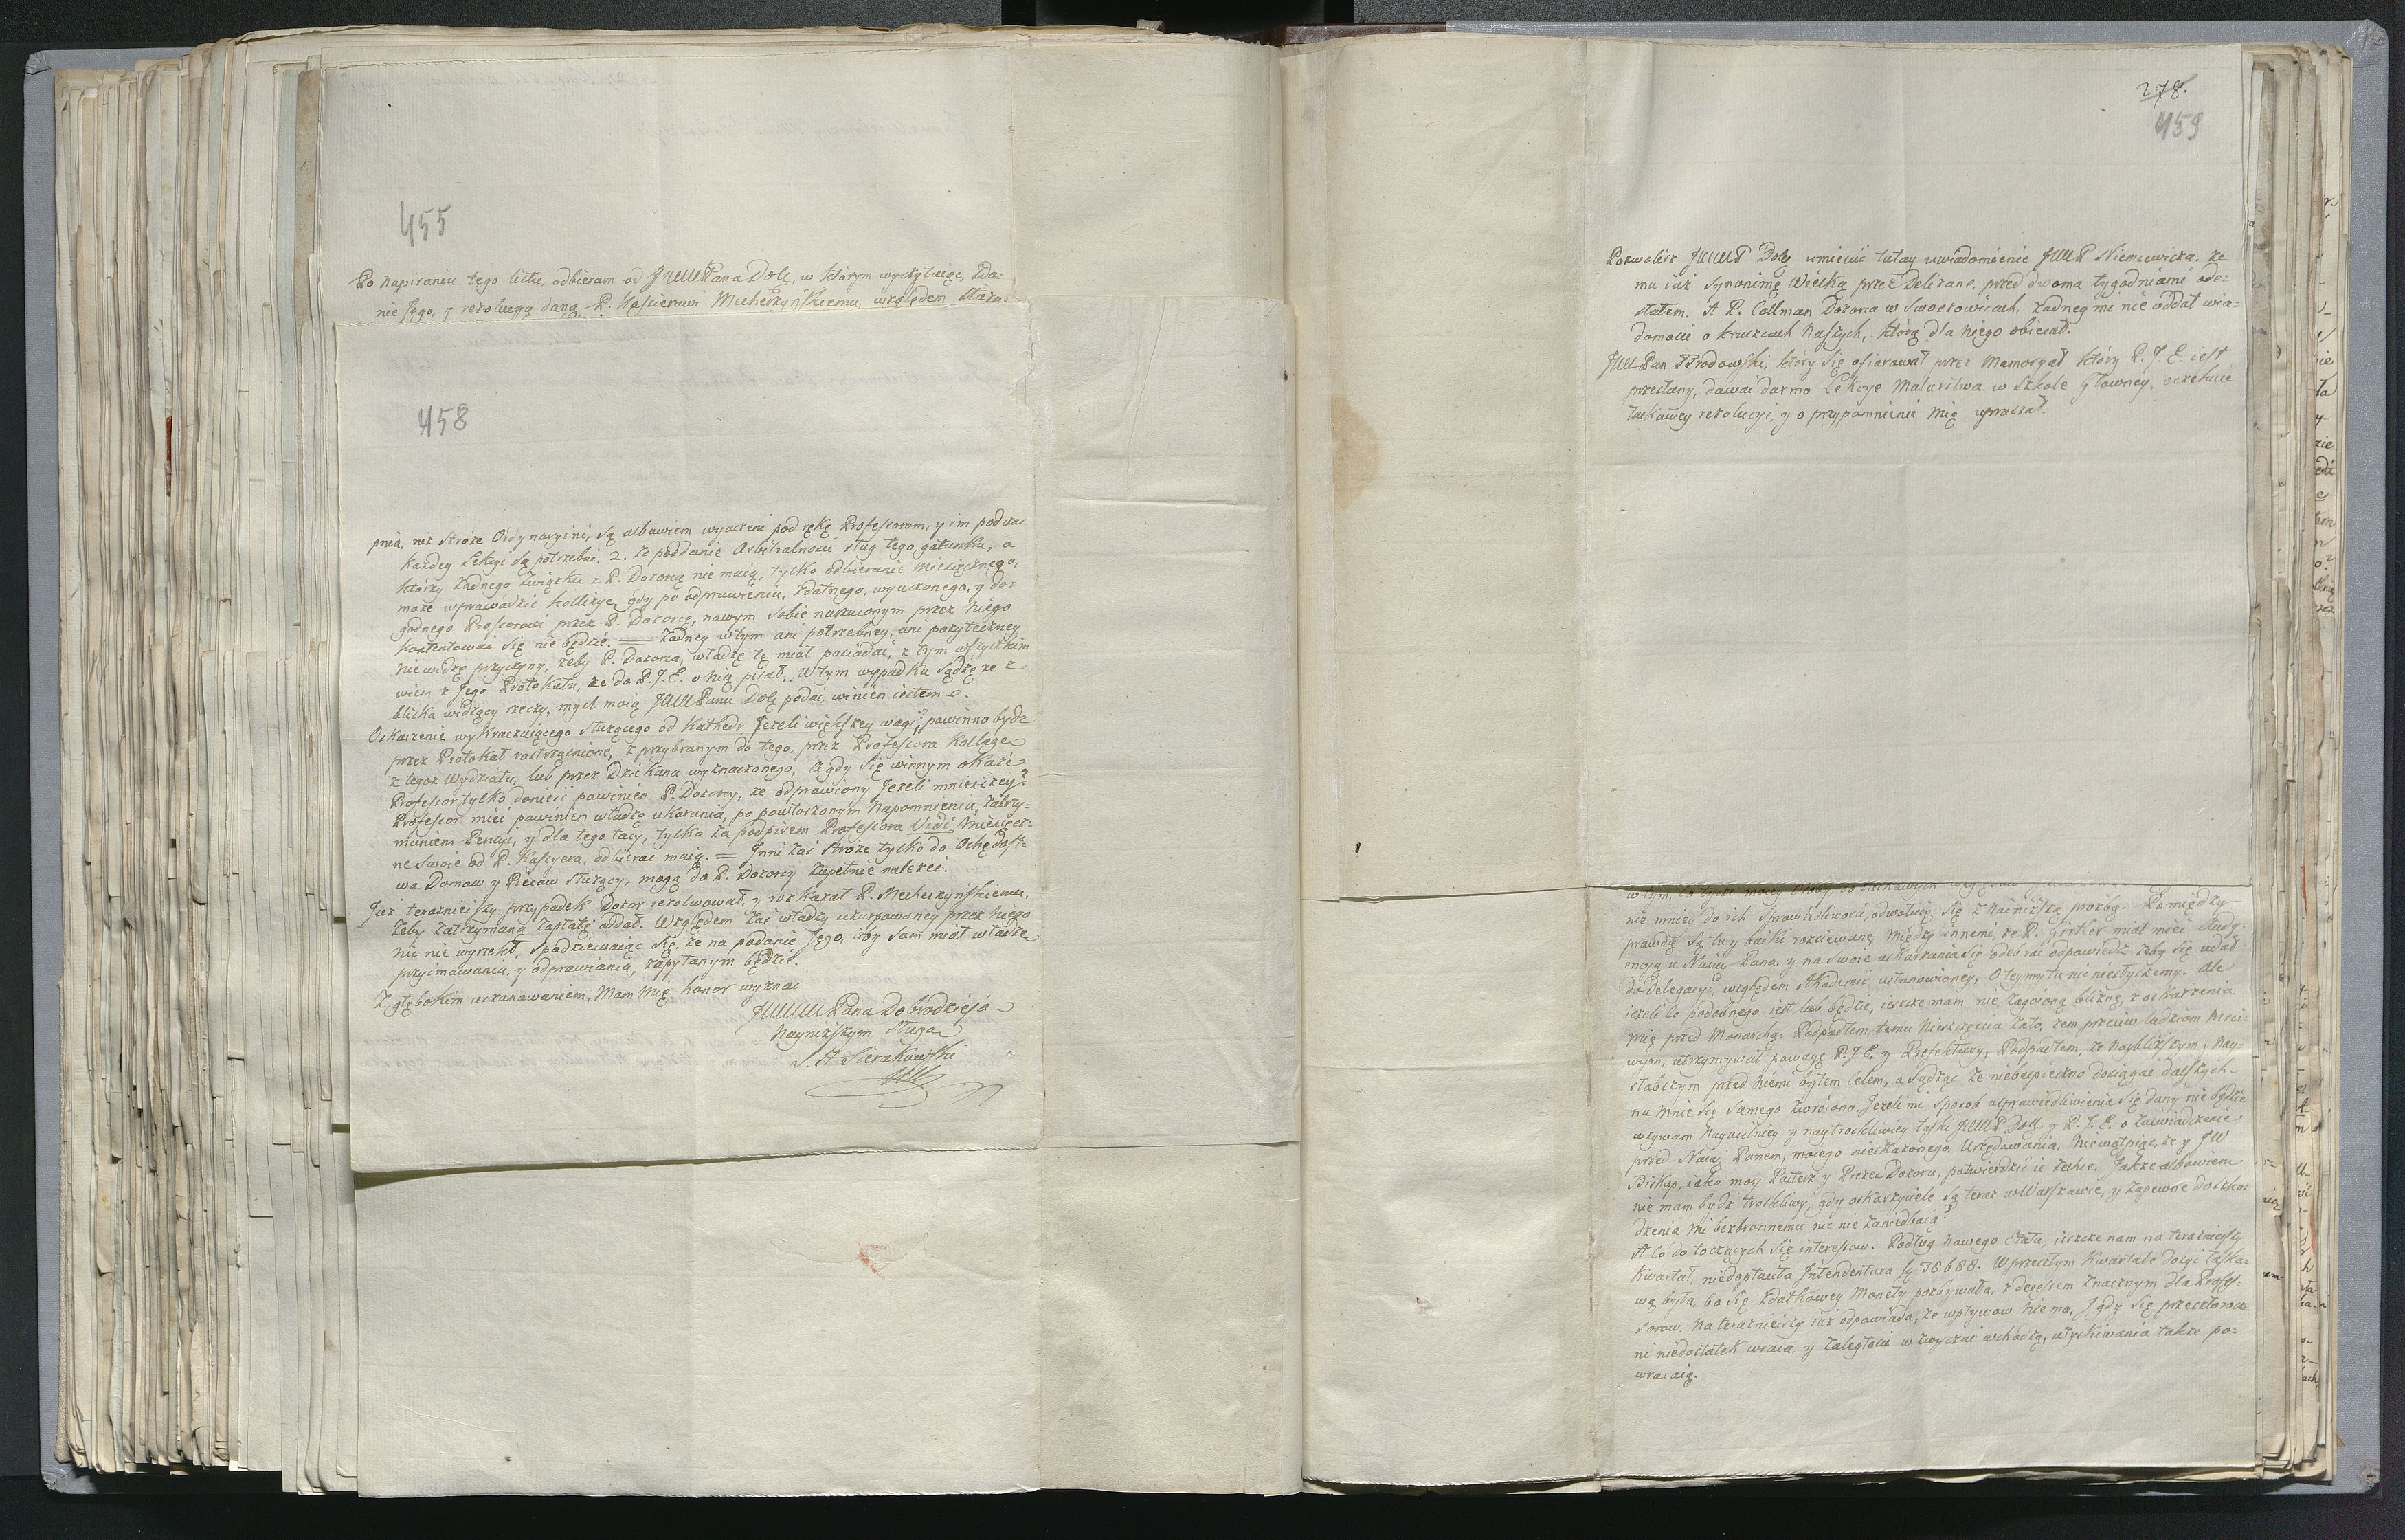 455
Po napisaniu tego listu, odbieram od JWWPana Dobę, w którym wyczytuiąc, Zda=
nie Jego, y rezolucyą daną P. Kassierowi Mecherzyńskiemu, względem
458
pnia, niż stróże Ordynaryini, są albowiem wyuczeni pod rękę Professorom, y im podczas
każdey Lekcyi są potrzebni. 2. że poddanie Arbitralności sług tego gatunku, a
którzy żadnego związku z P. Dozorcą nie maią, tylko odbieranie Miesięcznego,
może wprowadzić kollizye, gdy po odprawieniu, zdatnego, wyuczonego, y do=
godnego Professorowi przez P. Dozorcę, nowym sobie narzuconym przez niego
kontentować się nie będzie. — żadney w tym ani potrzebney, ani pożyteczney
nie widzę przyczyny, żeby P. Dozorca, władzę tę miał posiadać, z tym wszystkim
wiem z Jego Protokułu, że do P. J. E. o nią pisał. W tym wypadku sądzę że z
bliska widzący rzeczy, myśl moią JWW Panu Dobę podać, winien iestem.
Oskarżenie wykraczaiącego służącego od Kathedr, Jeżeli większey wagi; powinno bydź
przez Protokuł rostrzęnione, z przybranym do tego, przez Professora Kollegę
z tegoż Wydziału, lub przez Dziekana wyznaczonego, A gdy się winnym okaże
Professor tylko donieść powinien P. Dozorcy, że odprawiony. Jeżeli mnieyszey?
Professor mieć powinien władzę ukarania, po powtórzonym Napomnieniu, zatrzy=
maniem Pensyi, y dla tego tacy, tylko za podpisem Professora Vidi, Miesięcz=
ne swoie od P. Kassyera, odbierać maią. = Inni zaś stróże tylko do Ochędost=
wa Domow y Piecow służący, mogą do P. Dozorcy zupełnie należeć.
Już teraznieyszy przypadek Dozor rezolwował, y rozkazał P. Mecherzyńskiemu,
żeby zatrzymaną zapłatę oddał. Względem zaś władzy uzurpowaney przez niego
nic nie wyrzekł, spodziewaiąc się, że na podanie Jego, iżby sam miał władzę
przyimowania, y odprawiania, zapytanym będzie.
Z głębokim uszanowaniem, Mam mię honor wyznać
Pana Dobrodzieja
Nayniższym Sługą
Sierakowski
278.
459
Pozwolisz JWWP Dobę umieścić tutay uwiadomienie JWWP Niemcewicza, że
mu iuż Synonimę Wielką przez Deliżans, przed dwoma tygodniami ode=
słałem. A P. Collman Dozorca w Swoszowicach, żadney mi nie oddał wia=
domości o kruszcach Naszych, którą dla niego obiecał.
JWPan Brodowski, który się ofiarował przez Memoryał który P. J. E. iest
przesłany, dawać darmo Lekcye Malarstwa w Szkole Głowney, oczekuie
łaskawey rezolucyi, y o przypomnienie Mię upraszał.
nie mniey do ich sprawiedliwości, odwołuię się z nainiższą prożbą. Pomiędzy
prawdą są tu y baiki rozsiewane, Między innemi, że P. Girtler miał mieć Audy=
encyą u Naiaś: Pana, y na swoie uskarżania się odebrał odpowiedź żeby się udał
do Delegacyi względem Akademii ustanowioney, O tey my tu nic niesłyszemy. Ale
ieżeli co podobnego iest lub będzie, ieszcze mam nie zagoioną bliznę, z oskarżenia
Mię przed Monarchą. Podpadłem temu Nieszczęściu zato, żem przeciw ludziom Mści=
wym, utrzymywał powagę P. J. E. y Prefektury, Podpadłem, że Naybliższym y Nay=
słabszym przed niemi byłem celem, a sądząc że niebezpieczno dosięgać dalszych
na mnie się samego zwrócono. Jeżeli mi sposob usprawiedliwienia się dany nie będzie
wzywam Nayusilniey y naytroskliwiey łaski JWWP Dobę y P. J. E. o zaświadczenie
przed Naiaś: Panem, moiego nieskażonego Urzędowania, Niewątpiąc, że y JW
Biskup, iako moy Pasterz y Prezes Dozoru, potwierdzić ie zechce. Jakże albowiem
nie mam bydź troskliwy, gdy oskarżyciele są teraz w Warszawie, y zapewne do szko=
dzenia mi bezbronnemu nic nie zaniedbaią?
A co do toczących się interessow. Podług Nowego Etatu, ieszcze nam na teraznieiszy
Kwartał, niedopłaciła Intendentura Zł 38688. W przeszłym Kwartale dosyć łaska=
wą była, bo się zdatkowey Monety pozbywała, z decessem znacznym dla Profes=
sorow. Na teraznieiszy iuż odpowiada, że wpływow nie ma, J gdy się przeszłorocz=
ni niedostatek wraca, y zaległości w zwyczai wchodzą, utyskiwania także po=
wracaią.